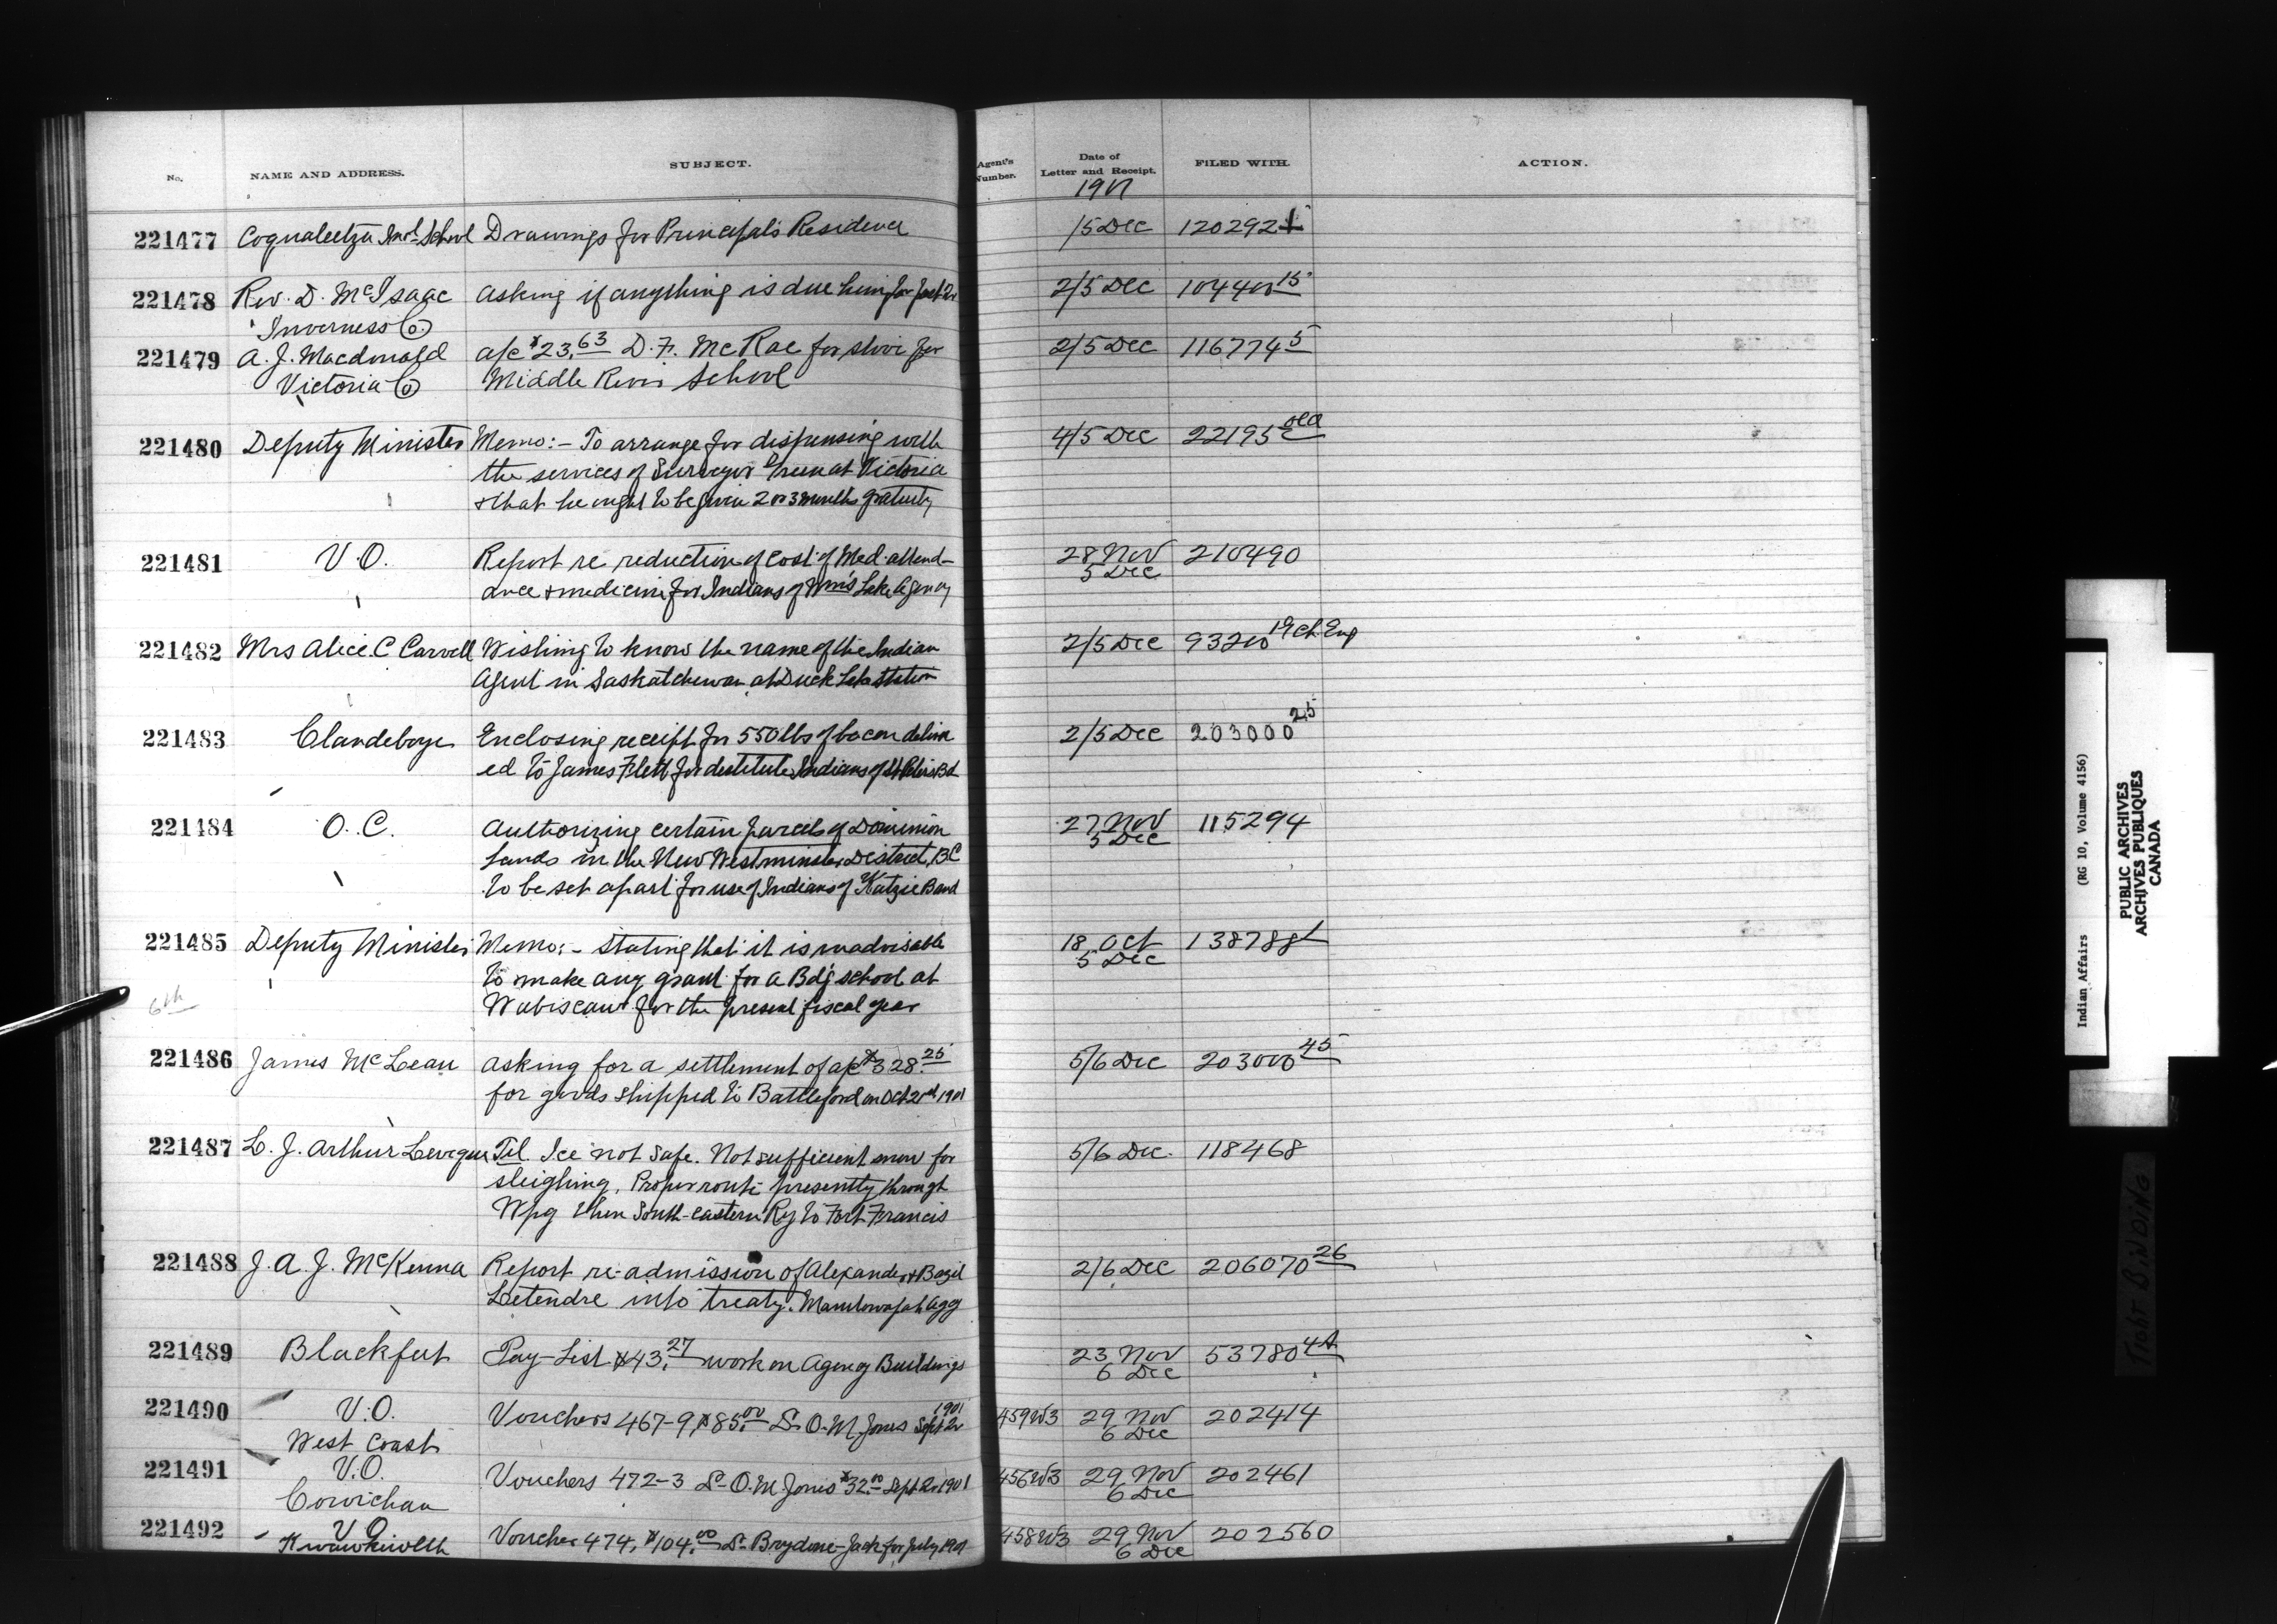 No. NAME AND ADDRESS. SUBJECT. Agent's Number. Date of Letter and Receipt. FILED WITH. ACTION.
1901
221477 Coqualeetza Indl School Drawings for Principal's Residence /5 Dec 120292-1
221478 Rev. D. McIsaac asking if anything is due him for Sept Qr 2/5 Dec 104400 15
Inverness Co
221479 A. J. Macdonald a/c $23.63 D. F. McRae for stove for 2/5 Dec 116774 5
Victoria Co Middle River School
221480 Deputy Minister Memo:- To arrange for dispensing with 4/5 Dec 22195 old
the services of Surveyor Green at Victoria
& that he ought to be given 2 or 3 months gratuity
221481 V.O. Report re reduction of cost of Med. attend- 28 Nov 210490
ance & medicine for Indians of Wm's Lake Agency 5 Dec
221482 Mrs Alice C Carvell Wishing to know the name of the Indian 2/5 Dec 93200 19 Ch. Eng
Agent in Saskatchewan at Duck Lake Station
221483 Clandeboye Enclosing receipt for 550 lbs of bacon deliver 2/5 Dec 203000 25
ed to James Flett for destitute Indians of St Peters Bd
221484 O.C. Authorizing certain parcels of Dominion 27 Nov 115294
Lands in the New Westminster District, BC 5 Dec
to be set apart for use of Indians of Katzie Band
221485 Deputy Minister Memo:- Stating that it is inadvisable 18 Oct 138788 1
to make any grant for a Bdg School at 5 Dec
6th Wabiscaw for the present fiscal year
221486 James McLean asking for a settlement of a/c $328.25 5/6 Dec 203000 45
for goods shipped to Battleford on Oct 2nd 1901
221487 L. J. Arthur Leveque Tel. Ice not safe. Not sufficient snow for 5/6 Dec. 118468
sleighing. Proper route presently through
Wpg then South-eastern Ry to Fort Francis
221488 J. A. J. McKenna Report re admission of Alexander & Bazil 2/6 Dec 206070 26
Letendre into treaty. Manitowapah Agy
221489 Blackfeet Pay-List $43.27 work on Agency Buildings 23 Nov 53780 4A
6 Dec
221490 V.O. Vouchers 467-9, $85.00 Dr O. M. Jones Sept Qr 1901 459W3 29 Nov 202414
West Coast 6 Dec
221491 V.O. Vouchers 472-3 Dr O. M. Jones $32.00 Sept Qr 1901 456W3 29 Nov 202461
Cowichan 6 Dec
221492 V.O. Voucher 474, $104.00 Dr Brydone-Jack for July 1901 458W3 29 Nov 202560
Kwawkewlth 6 Dec
Indian Affairs (RG 10, Volume 4156)
PUBLIC ARCHIVES
ARCHIVES PUBLIQUES
CANADA
TIGHT BINDING